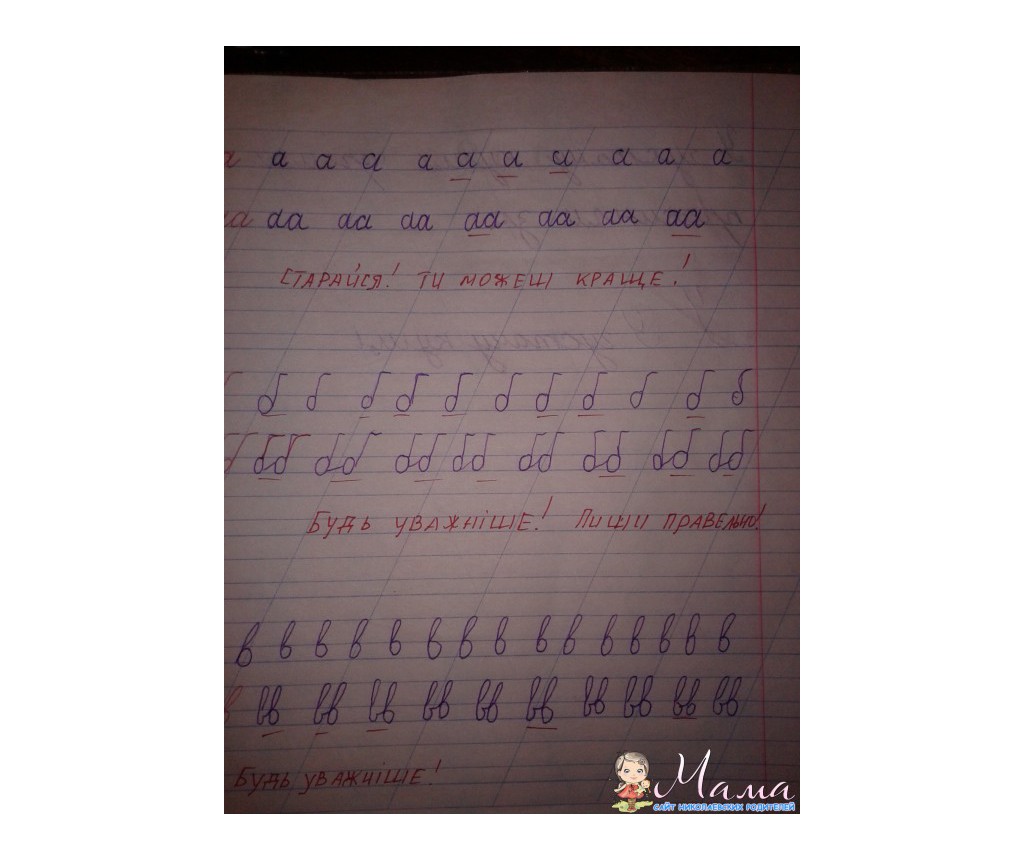 а а а а а а а а а а а
аа аа аа аа аа аа аа аа
СТАРАЙСЯ! ТИ МОЖЕШ КРАЩЕ!
б б б б б б б б б б б б
б бб бб бб бб бб бб бб бб
БУДЬ УВАЖНІШЕ! ПИШИ ПРАВЕЛЬНО!
в в в в в в в в в в в в в в
в вв вв вв вв вв вв вв вв вв вв
БУДЬ УВАЖНІШЕ!
Мама
САЙТ НИКОЛАЕВСКИХ РОДИТЕЛЕЙ